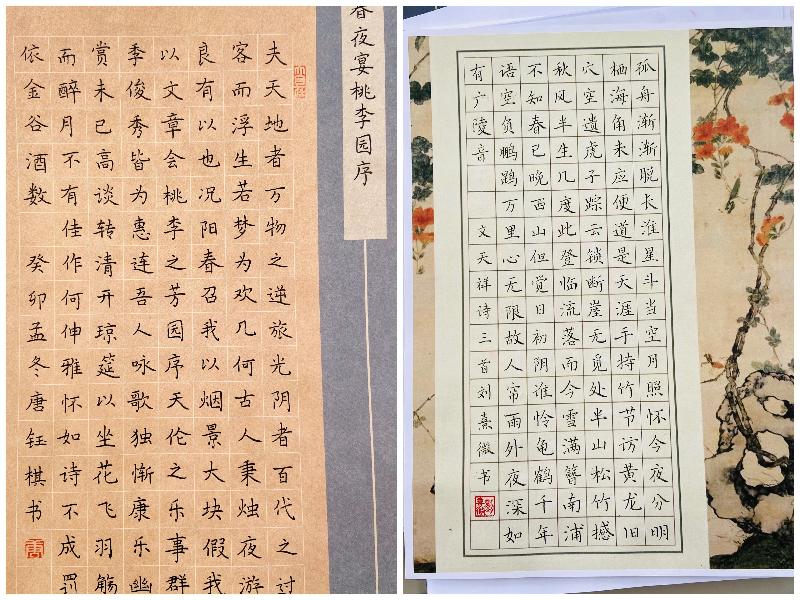 春夜宴桃李园序
夫天地者万物之逆旅光阴者百代之过
客而浮生若梦为欢几何古人秉烛夜游
良有以也况阳春召我以烟景大块假我
以文章会桃李之芳园序天伦之乐事群
季俊秀皆为惠连吾人咏歌独惭康乐幽
赏未已高谈转清开琼筵以坐花飞羽觞
而醉月不有佳作何伸雅怀如诗不成罚
依金谷酒数 癸卯孟冬唐钰棋书
孤舟渐渐脱长淮星斗当空月照怀今夜分明
栖海角未应便道是天涯手持竹节访黄龙旧
穴空遗虎子踪云锁断崖无觅处半山松竹撼
秋风半生几度此登临流落而今雪满簪南浦
不知春已晚西山但觉日初阴谁怜龟鹤千年
语空负鹏鹍万里心无限故人帘雨外夜深如
有广陵音 文天祥诗三首刘熹微书